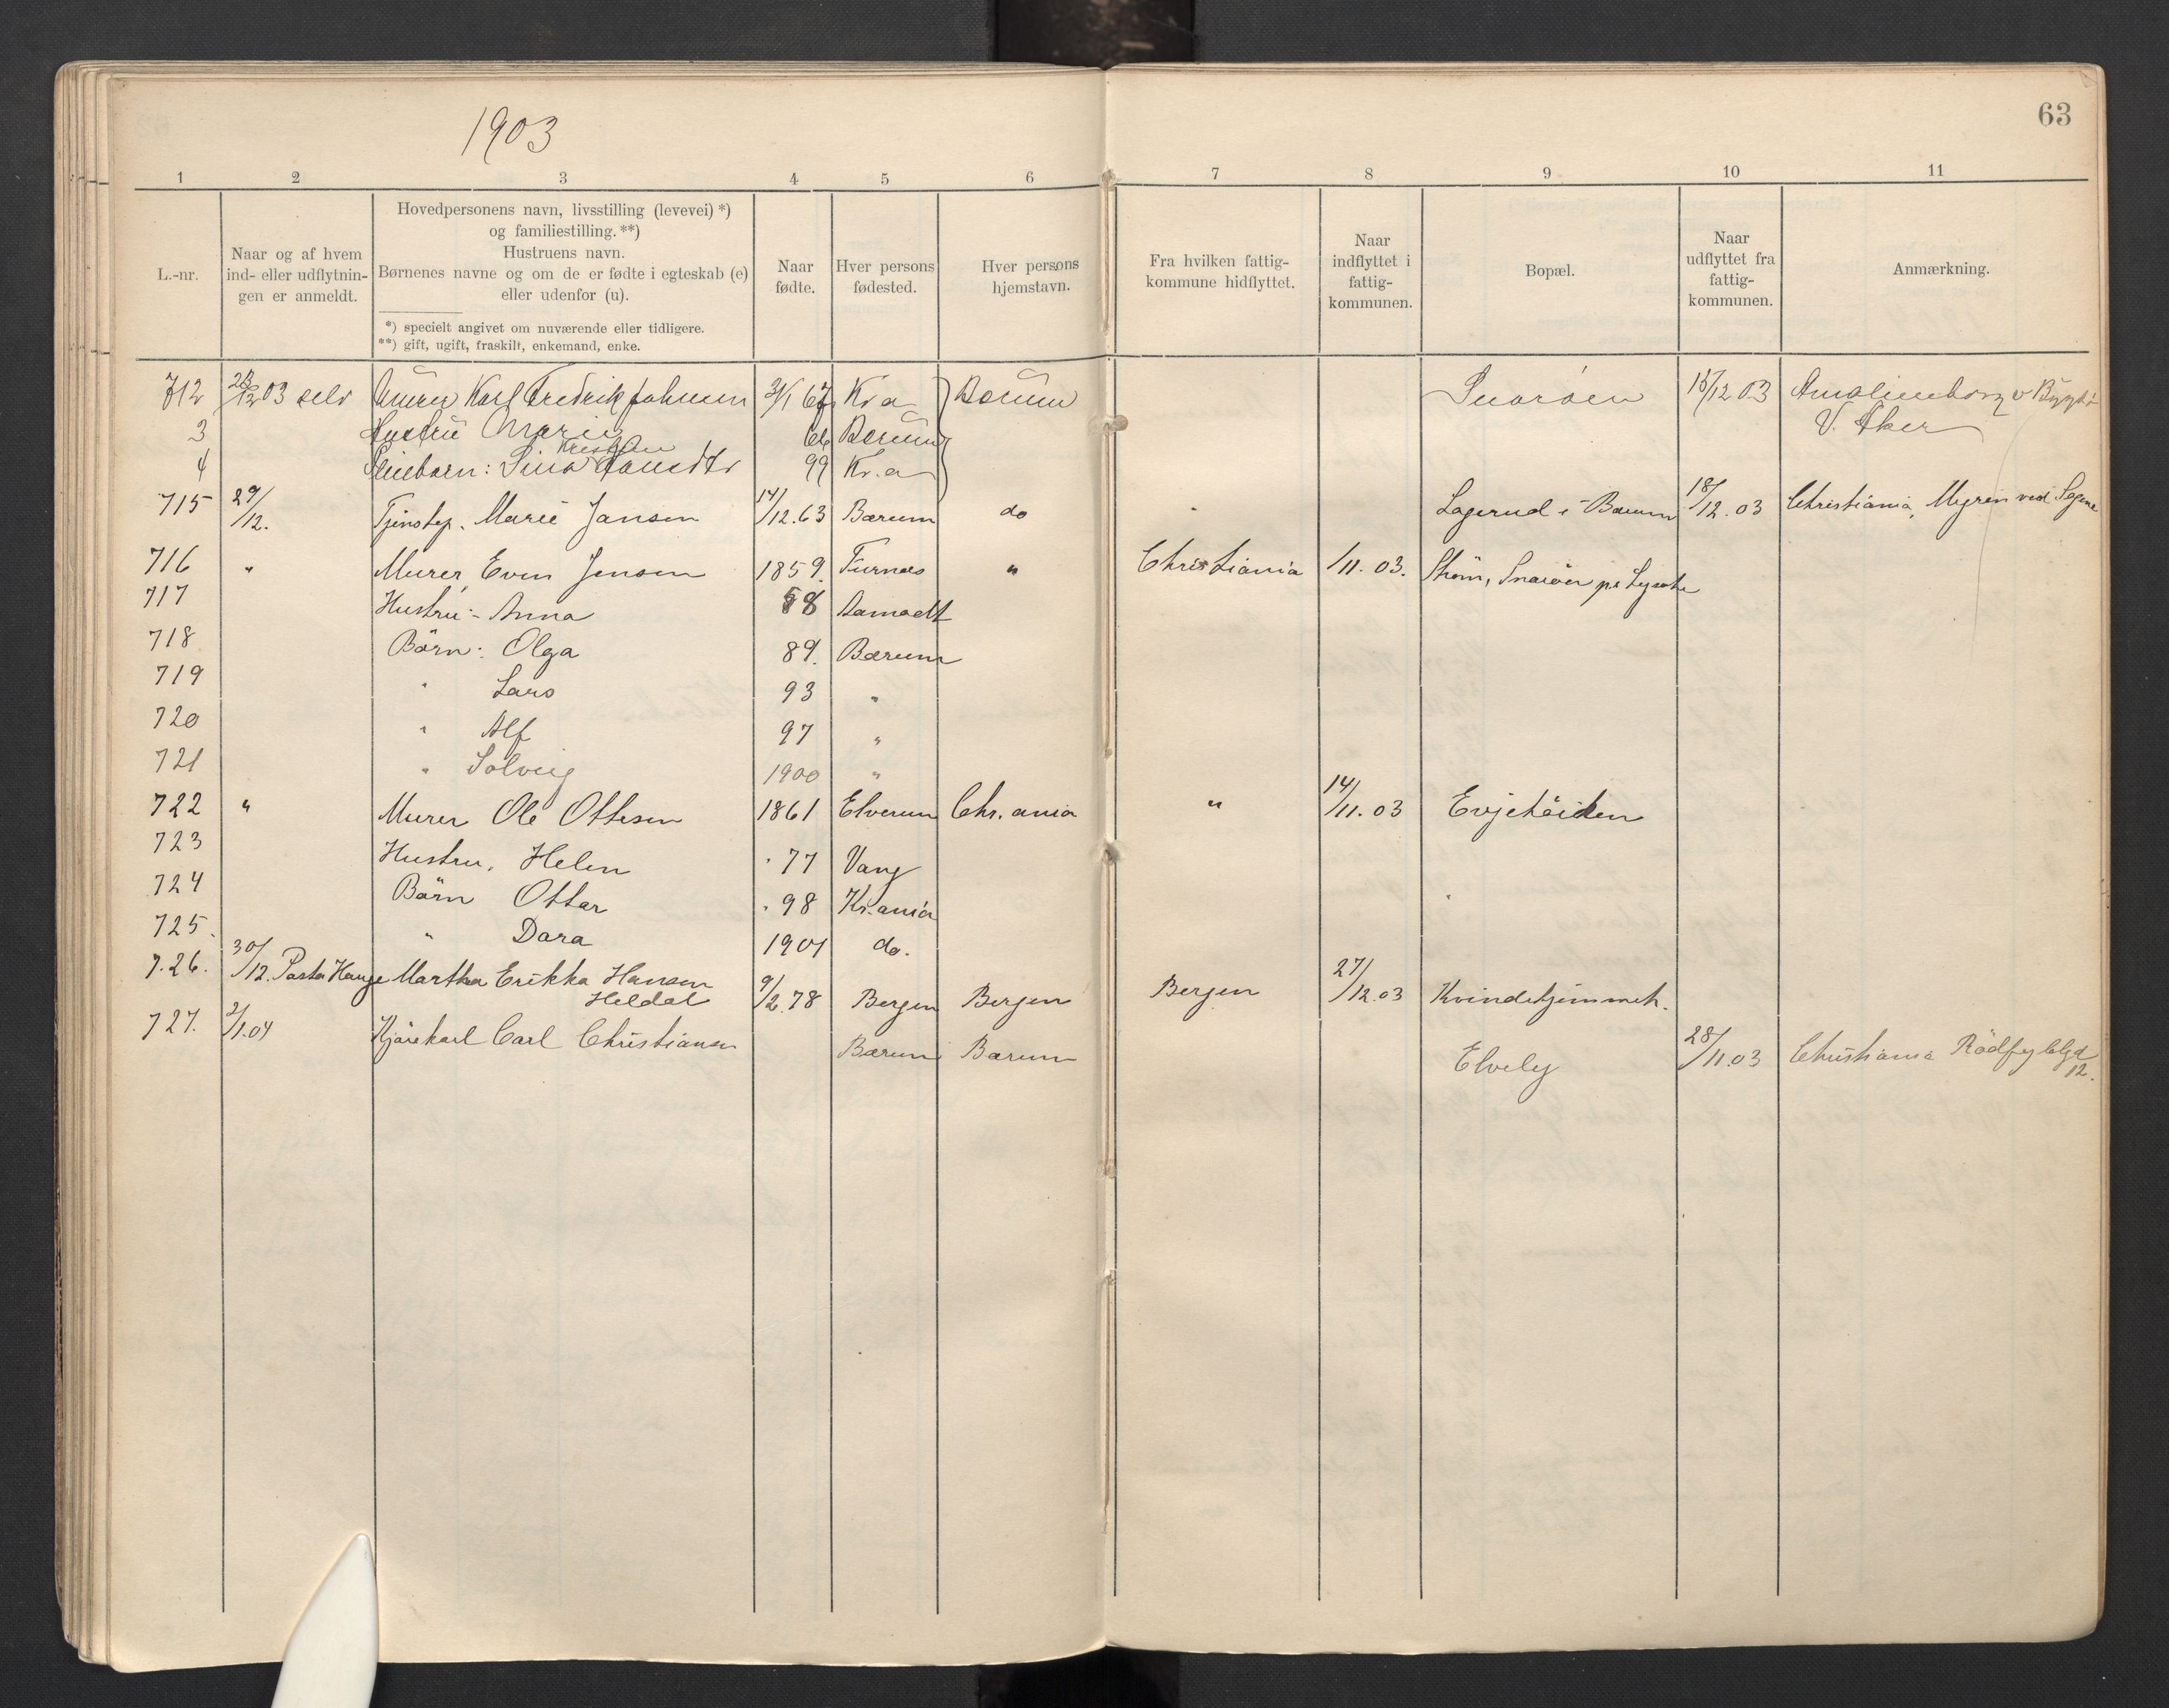 63
1903
1 2 3 4 5 6 7 8 9 10 11
L.-nr.
Naar og af hvem
ind- eller udflytnin-
gen er anmeldt.
Hovedpersonens navn, livsstilling (levevei) *)
og familiestilling. **)
Hustruens navn.
Børnenes navne og om de er fødte i egteskab (e)
eller udenfor (u).
*) specielt angivet om nuværende eller tidligere.
**) gift, ugift, fraskilt, enkemand, enke.
Naar
fødte.
Hver persons
fødested.
Hver persons
hjemstavn.
Fra hvilken fattig-
kommune hidflyttet.
Naar
indflyttet i
fattig-
kommunen.
Bopæl.
Naar
udflyttet fra
fattig-
kommunen.
Anmærkning.
712 28/12 03 selv Murer Karl Fredrik Johnsen 31/1 67 Kr a Bærum Snarøen 15/12 03 Amalienborg v Bygdø
V. Aker
3 Hustru Marie 66 Bærum
4 Pleiebarn: Kristine 99 Kr. a
715 29/12. Tjenstep. Marie Jansen 14/12.63 Bærum do Lagerud i Bærum 18/12.03 Christiania, Myren ved Sagene
716 " Murer Even Jensen 1859. Furnæs " Christiania /11.03. Strøm, Snarøen pr. Lysaker
717 Hustru - Anna 58 Aamodt
718 Børn: Olga 89. Bærum
719 " Lars 93 "
720 " Alf 97 "
721 " Solveig 1900 "
722 " Murer Ole Ottesen 1861 Elverum Chr.ania " 14/11.03 Evjehøiden
723 Hustru, Helen " 77 Vang
724 Børn Ottar " 98 Kr.ania
725. " Dora 1901 do.
7.26. 30/12. Pastor Hauge Martha Erikka Hansen
Heldal 9/2.78 Bergen Bergen Bergen 27/12.03 Kvindehjemmet.
727. 2/1.04 Kjørekarl Carl Christiansen Bærum Bærum Elvely 28/11.03 Christiania Rødfyldgd
12.